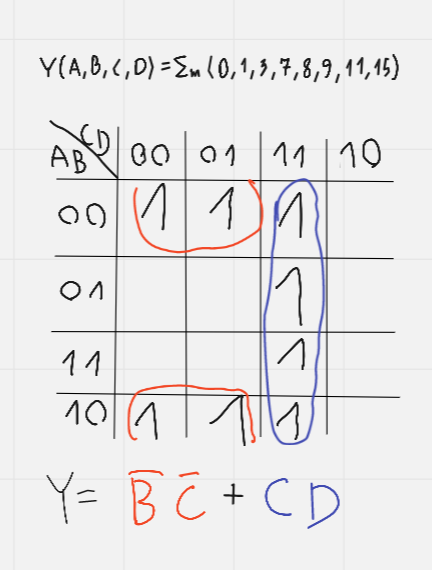 Y(A,B,C,D)=Σm(0,1,3,7,8,9,11,15)
CD
AB 00 01 11 10
00 1 1 1
01 1
11 1
10 1 1 1
Y= B̅ C̅ + CD